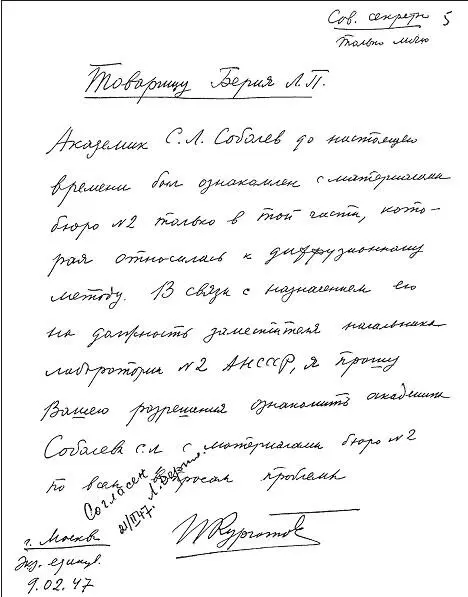 Сов. секретн 5
Только лично
Товарищу Берия Л.П.
Академик С.Л. Соболев до настоящего
времени был ознакомлен с материалами
бюро №2 только в той части, кото-
рая относилась к диффузионному
методу. В связи с назначением его
на должность заместителя начальника
лаборатории №2 АНСССР, я прошу
Вашего разрешения ознакомить академика
Соболева С.Л. с материалами бюро №2
по всем вопросам проблемы
Согласен
Л. Берия.
21/III 47.
И Курчатов
г. Москва
Экз. единств.
9.02.47